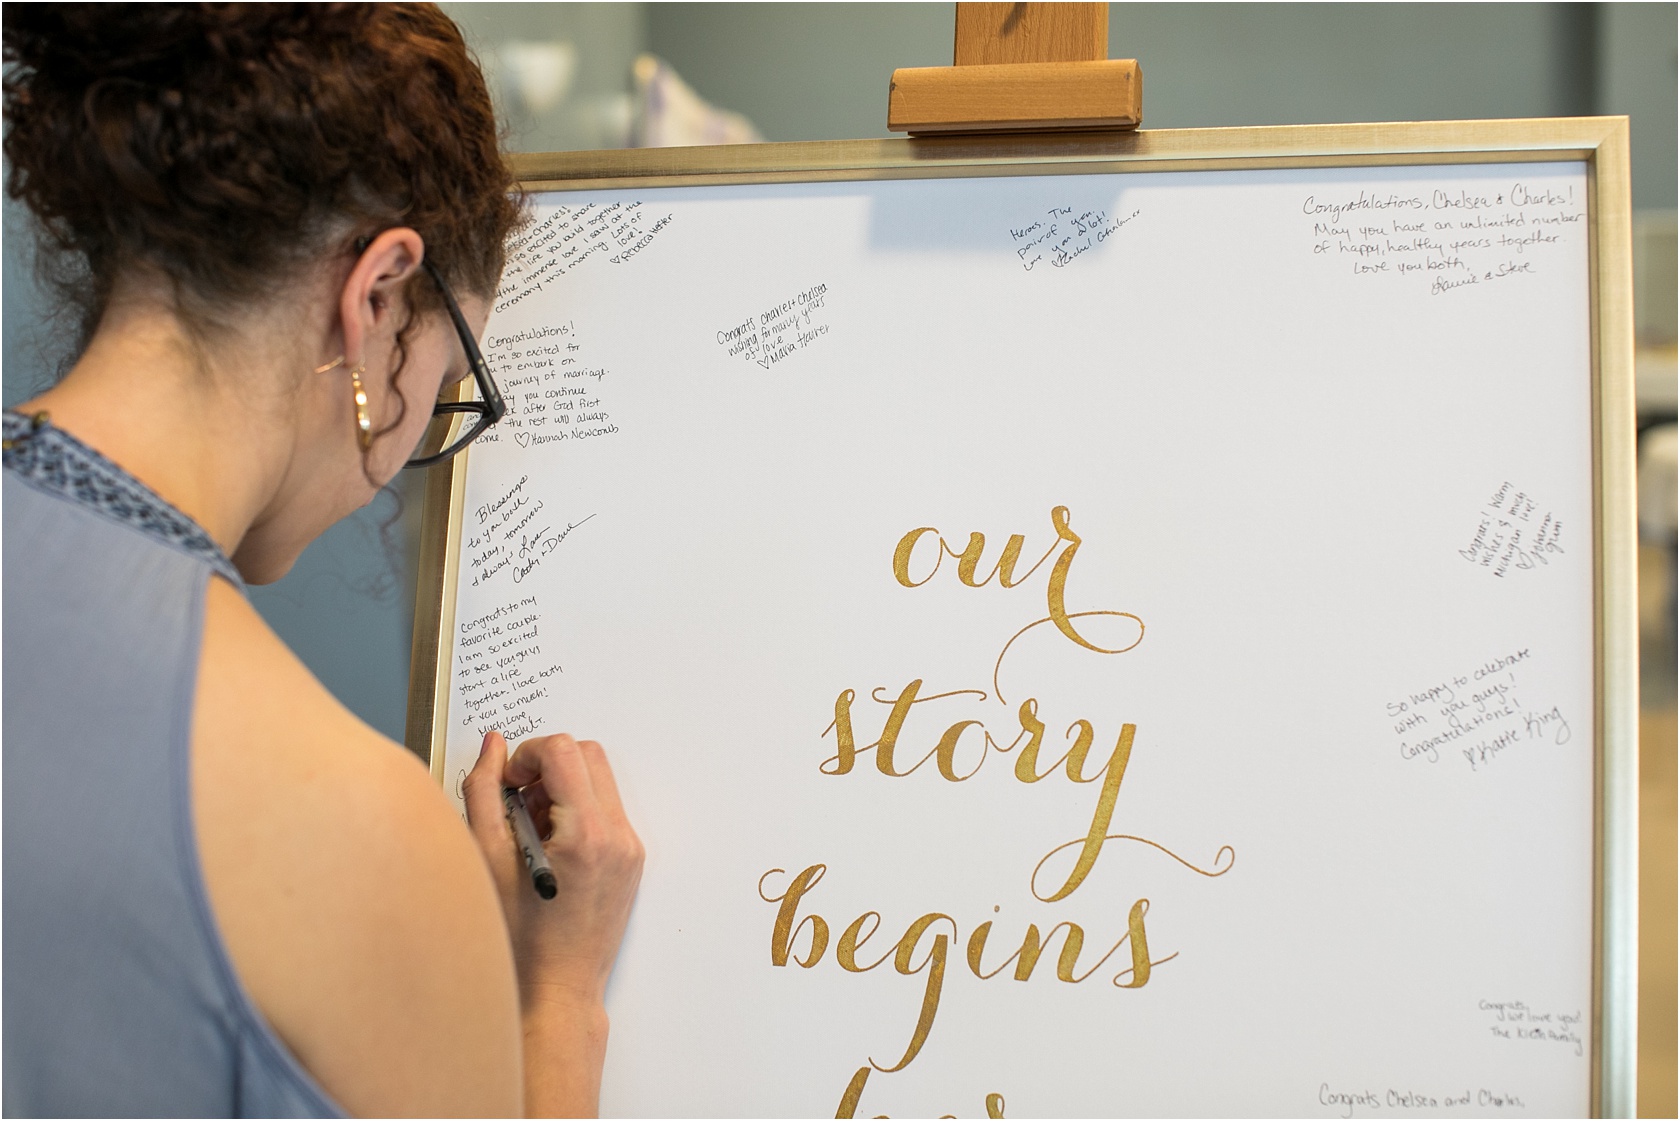 Charles!
so excited to share
the life you build together
the immense love I saw at the
ceremony this morning. Lots of
love!
♡Rebecca
Congratulations!
I'm so excited for
to embark on
journey of marriage.
you continue
after God first
the rest will always
come. ♡Hannah Newcomb
Blessings
to you both
today, tomorrow
& always Love
Cody + Dave
Congrats to my
favorite couple.
I am so excited
to see you guys
start a life
together. I love both
of you so much!
Much Love
Rachel T.
Heroes. The
pair of you.
Love you a lot!
♡Rachel
Congrats Charles + Chelsea
wishing for many years
of love
♡Maria
Congratulations, Chelsea & Charles!
May you have an unlimited number
of happy, healthy years together.
Love you both,
& Steve
Congrats! Warm
wishes & much
Michigan love!
♡Johanna
our
story
begins
So happy to celebrate
with you guys!
Congratulations!
♡Katie King
Congrats,
we love you!
The Family
Congrats Chelsea and Charles,